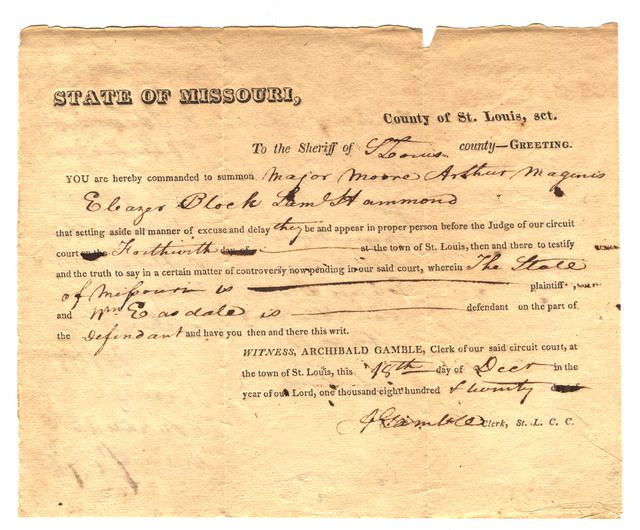 STATE OF MISSOURI,
County of St. Louis, sct.
To the Sheriff of St Louis county—GREETING.
YOU are hereby commanded to summon Major Moore Arthur Maginis
Eleazer Block Saml Hammond
that setting aside all manner of excuse and delay they be and appear in proper person before the Judge of our circuit
court on the Forthwith day of at the town of St. Louis, then and there to testify
and the truth to say in a certain matter of controversy now pending in our said court, wherein The State
of Missouri is plaintiff
and Wm Easdale is defendant on the part of
the Defendant and have you then and there this writ.
WITNESS, ARCHIBALD GAMBLE, Clerk of our said circuit court, at
the town of St. Louis, this 18th day of Decr in the
year of our Lord, one thousand eight hundred & twenty
A Gamble Clerk, St. L. C. C.